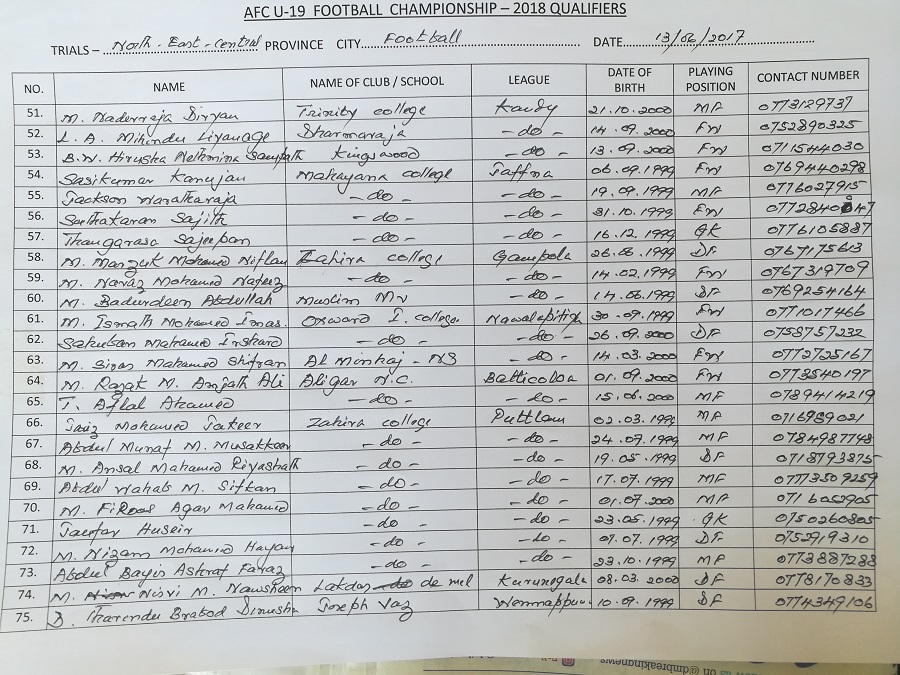 AFC U-19 FOOTBALL CHAMPIONSHIP – 2018 QUALIFIERS
TRIALS – North-East-Central PROVINCE CITY Football DATE 13/06/2017
NO. NAME NAME OF CLUB / SCHOOL LEAGUE DATE OF BIRTH PLAYING POSITION CONTACT NUMBER
51. M. Naderraja Diryan Trinity college Kandy 21.10.2000 MF 0773129737
52. L.A. Mihindu Liyanage Dharmaraja -do- 14.09.2000 FW 0752890325
53. B.W. Hirusha Nethmina Sampath Kingswood -do- 13.09.2000 FW 0711544030
54. Sasikumar Kanujan Mahayana college Jaffna 06.09.1999 FW 0769440298
55. Jackson -do- -do- 19.09.1999 MF 0776027915
56. Sathakaran Sajith -do- -do- 31.10.1999 FW
57. Thangarasa Sajeepan -do- -do- 16.12.1999 GK 0776105887
58. M. Mohamed Niflan Zahira college Gampola 26.06.1999 DF 0767175613
59. M. Navaz Mohamed Nafeez -do- -do- 14.02.1999 FW 0767319709
60. M. Badurdeen Abdullah Muslim MV -do- 14.06.1999 DF 0769254164
61. M. Ismath Mohamed Imas. Oxward I. college Nawalapitiya 30.09.1999 FW 0771017466
62. Sahuban Mahamed Irshard -do- -do- 26.09.2000 DF 0758757232
63. M. Siras Mahamed Shifran Al Minhaj - NS -do- 14.03.2000 FW 0772725167
64. M. Razak M. Amjath Ali Aligar N.C. Batticoloa 01.09.2000 FW 0773540197
65. T. Aflal Ahamed -do- -do- 15.06.2000 MF 0789414219
66. Faiz Mohamed Jakeer Zahira college Puttlam 02.03.1999 MF 0716989021
67. Abdul Munaf M. Musakkeer -do- -do- 24.07.1999 MF 0784987748
68. M. Ansal Mahamed Riyashath -do- -do- 19.05.1999 DF 0718793875
69. Abdul Wahab M. Sifkan -do- -do- 17.07.1999 MF 07773509259
70. M. Firous Agar Mahamed -do- -do- 01.07.2000 MF 0716052905
71. Jaufar Husein -do- -do- 23.05.1999 GK 0750260805
72. M. Nizam Mohamed Hayan -do- -do- 07.07.1999 DF 0752919310
73. Abdul Bayis Ashraf Fayaz -do- -do- 23.10.1999 MF 0773887288
74. M. Nisvi M. Nawsheen Lakdas de mel Kurunegala 08.03.2000 DF 0778170833
75. D. Tharendu Brabod Dinusha Joseph Vaz Wennappuwa 10.09.1999 DF 0774349106
@dmbreakingnews